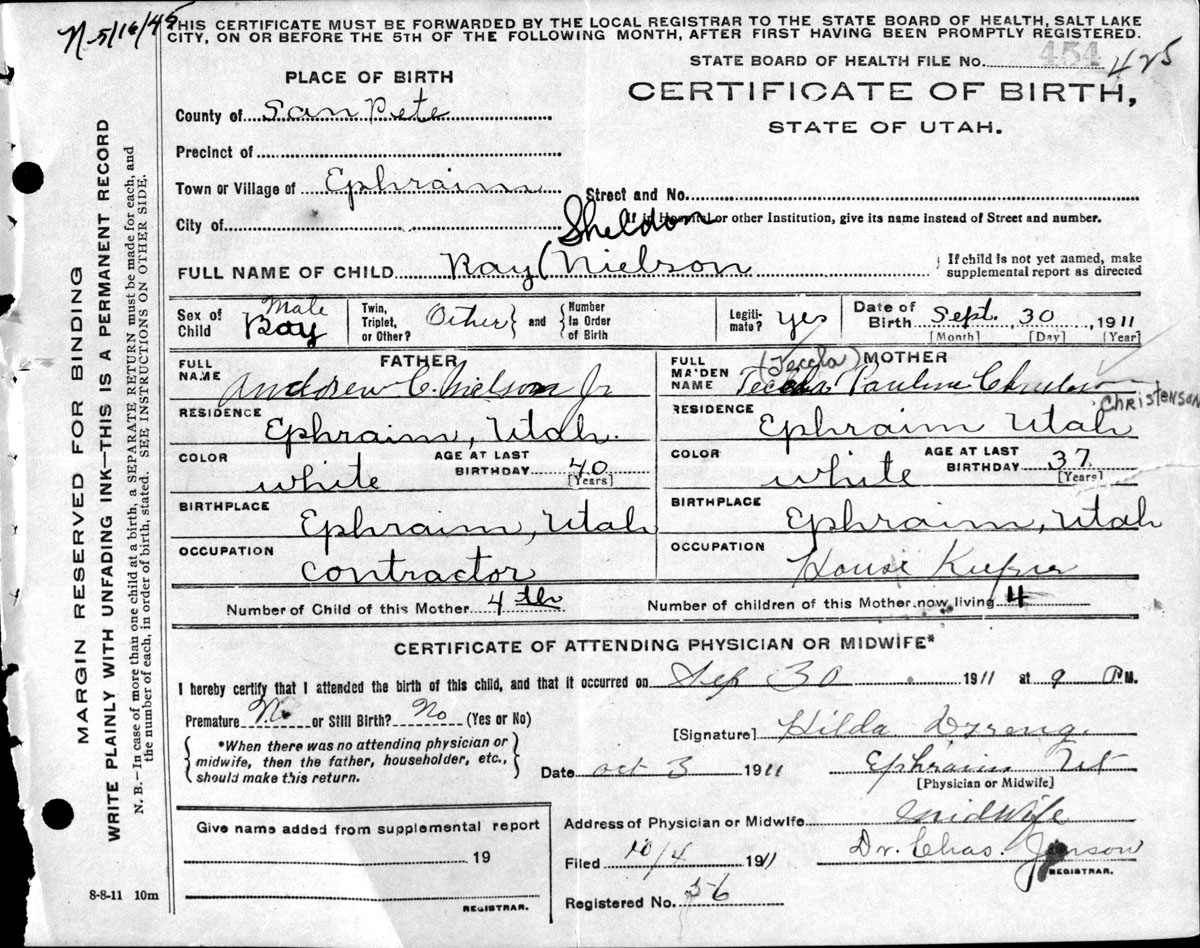 N-5/16/45
THIS CERTIFICATE MUST BE FORWARDED BY THE LOCAL REGISTRAR TO THE STATE BOARD OF HEALTH, SALT LAKE
CITY, ON OR BEFORE THE 5TH OF THE FOLLOWING MONTH, AFTER FIRST HAVING BEEN PROMPTLY REGISTERED.
STATE BOARD OF HEALTH FILE No. 454 425
PLACE OF BIRTH
CERTIFICATE OF BIRTH,
STATE OF UTAH.
County of San Pete
Precinct of
Town or Village of Ephraim Street and No.
City of If in Hospital or other Institution, give its name instead of Street and number.
Sheldon
FULL NAME OF CHILD Ray ( Nielson { If child is not yet named, make
supplemental report as directed
Sex of Child Male Boy
Twin, Triplet, or Other? Other } and { Number in Order of Birth
Legiti-mate? yes
Date of Birth Sept. 30, 1911
[Month] [Day] [Year]
FATHER
FULL NAME Andrew C. Nielson Jr
RESIDENCE Ephraim, Utah.
COLOR white AGE AT LAST BIRTHDAY 40 [Years]
BIRTHPLACE Ephraim, Utah
OCCUPATION Contractor
MOTHER
FULL MAIDEN NAME (Teccla) Pauline Christenson
RESIDENCE Ephraim Utah
COLOR white AGE AT LAST BIRTHDAY 37 [Years]
BIRTHPLACE Ephraim, Utah
OCCUPATION House Keeper
Number of Child of this Mother 4th Number of children of this Mother now living 4
CERTIFICATE OF ATTENDING PHYSICIAN OR MIDWIFE*
I hereby certify that I attended the birth of this child, and that it occurred on Sep 30 1911 at 9 PM.
Premature No or Still Birth? No (Yes or No)
{ *When there was no attending physician or
midwife, then the father, householder, etc.,
should make this return. }
[Signature] Hilda
Date Oct 3 1911 Ephraim Ut
[Physician or Midwife]
Address of Physician or Midwife midwife
Filed 10/4 1911 Dr. Chas. Jenson
REGISTRAR.
Registered No. 56
Give name added from supplemental report
19
REGISTRAR.
8-8-11 10m
MARGIN RESERVED FOR BINDING
WRITE PLAINLY WITH UNFADING INK—THIS IS A PERMANENT RECORD
N. B.—In case of more than one child at a birth, a SEPARATE RETURN must be made for each, and
the number of each, in order of birth, stated. SEE INSTRUCTIONS ON OTHER SIDE.